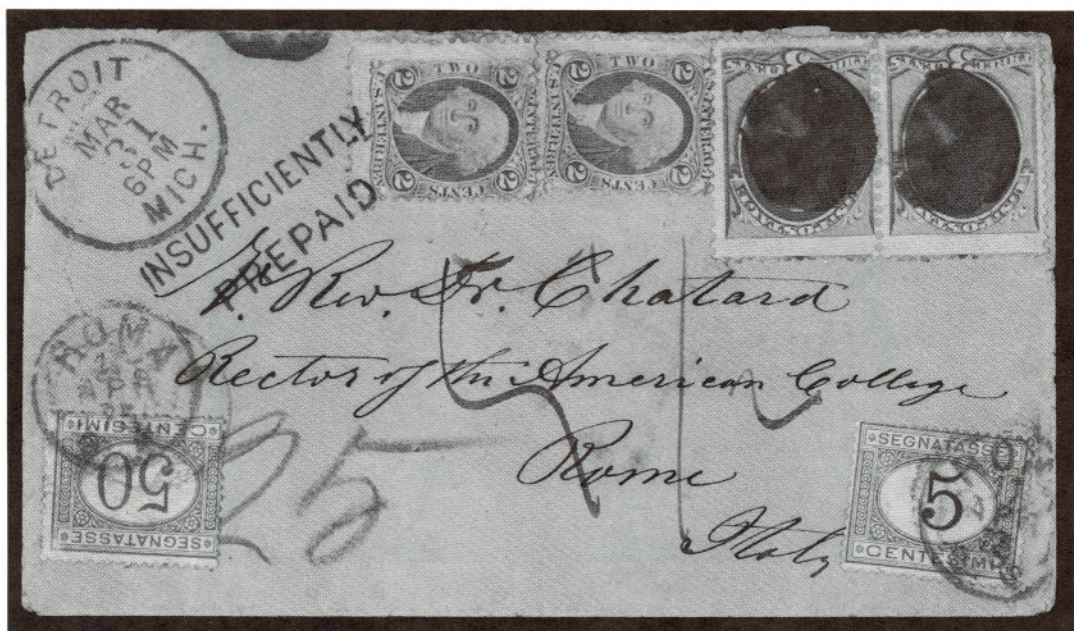 DETROIT
MAR
31
6 PM
MICH.
INSUFFICIENTLY
PREPAID
2 TWO 2
U.S. INTER. REV.
CENTS
2 2
2 TWO 2
U.S. INTER. REV.
CENTS
2 2
Rev. Dr. Chatard
Rector of the American College
Rome
Italy
ROMA
APR
CENTESIMI
50
SEGNATASSE
25
SEGNATASSE
5
CENTESIMI